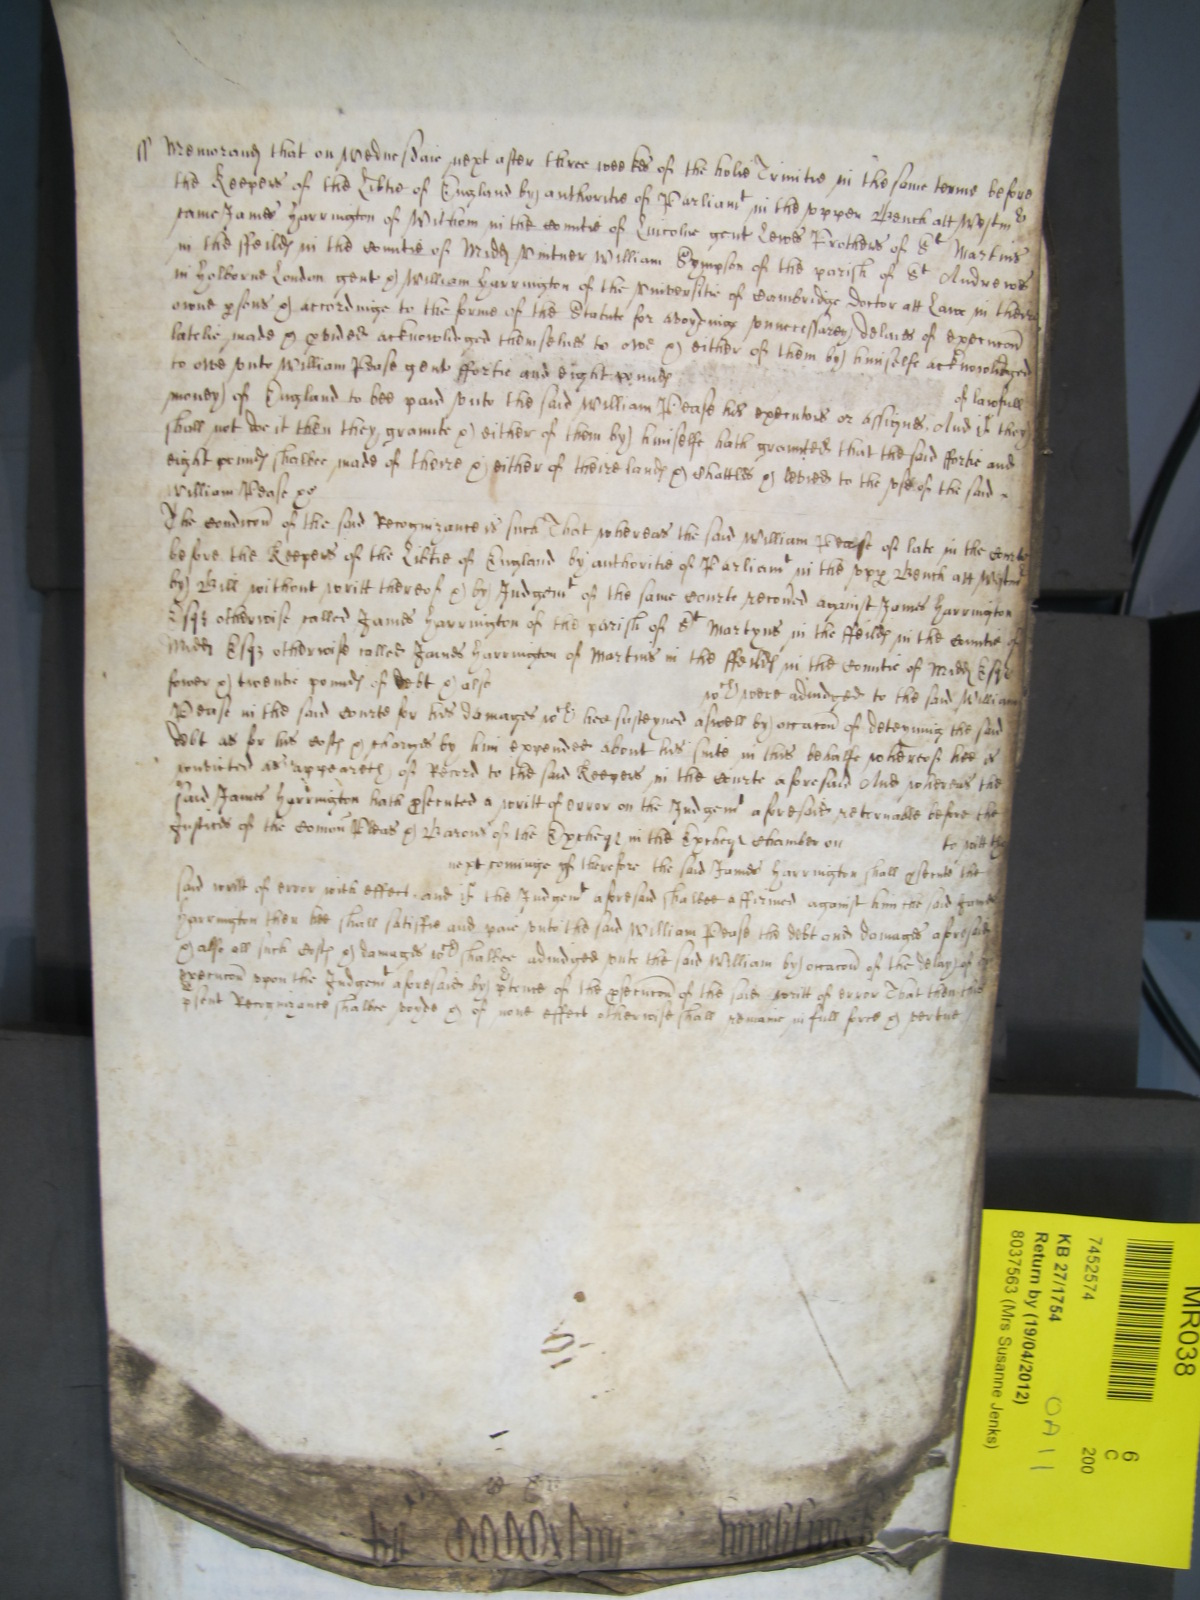 Memorand that on Wednesdaie next after three weekes of the holie Trinitie in the same terme before
the Keepers of the Libtie of England by authoritie of Parliamt in the upper Bench att Westm
came James Harrington of Withom in the countie of Lincolne gent Lewes Prothers of St Martins
in the ffeilds in the countie of Midd Vintner William Sympson of the parish of St Andrewes
in Holborne London gent & William Harrington of the Universitie of Cambridge Doctor att Lawe in theire
owne psons & accordinge to the forme of the Statute for avoydinge unnecessarey delaies of execucon
latelie made & pvided acknowledged themselves to owe & either of them by himselfe acknowledged
to owe unto William Pease gent ffortie and eight pounds of lawfull
money of England to bee paid unto the said William Pease his executors or assignes. And if they
shall not doe it then they graunte & either of them by himselfe hath graunted that the said ffortie and
eight pounds shalbee made of theire & either of theire lands & chattles & levied to the use of the said
William Pease &c
The condicon of the said Recognizance is such That whereas the said William Pease of late in the Courte
before the Keepers of the Libtie of England by authoritie of Parliamt in the upp Bench att Westm
by Bill without writt thereof & by Judgemt of the same Courte recoved against James Harrington
Esqr otherwise called James Harrington of the parish of St Martyns in the ffeilds in the Countie of
Midd Esqr otherwise called James Harrington of Martins in the ffeilds in the Countie of Midd Esqr
fower & twentie pounds of debt & alsoe wch were adiudged to the said William
Pease in the said Courte for his damages wch hee susteyned aswell by occacon of deteyning the said
debt as for his costs & charges by him expended about his suite in this behalfe whereof hee is
convicted as appeareth of Record to the said Keepers in the Courte aforesaid And whereas the
said James Harrington hath psecuted a writt of error on the Judgemt aforesaid returnable before the
Justices of the Comon Pleas & Barons of the Excheqr in the Excheqr Chamber on to witt the
next cominge If therefore the said James Harrington shall psecute the
said writt of error with effect. and if the Judgemt aforesaid shalbee affirmed against him the said James
Harrington then hee shall satisfie and paie unto the said William Pease the debt and damages aforesaid
& also all such costs & damages wch shalbee adiudged unto the said William by occacon of the delay of
execucon upon the Judgemt aforesaid by ptence of the psecucon of the said writt of error That then this
psent Recognizance shalbee voyde & of none effect otherwise shall remaine in full force & vertue
MR038
6
C
200
7452574
KB 27/1754
OA11
Return by (19/04/2012)
8037563 (Mrs Susanne Jenks)